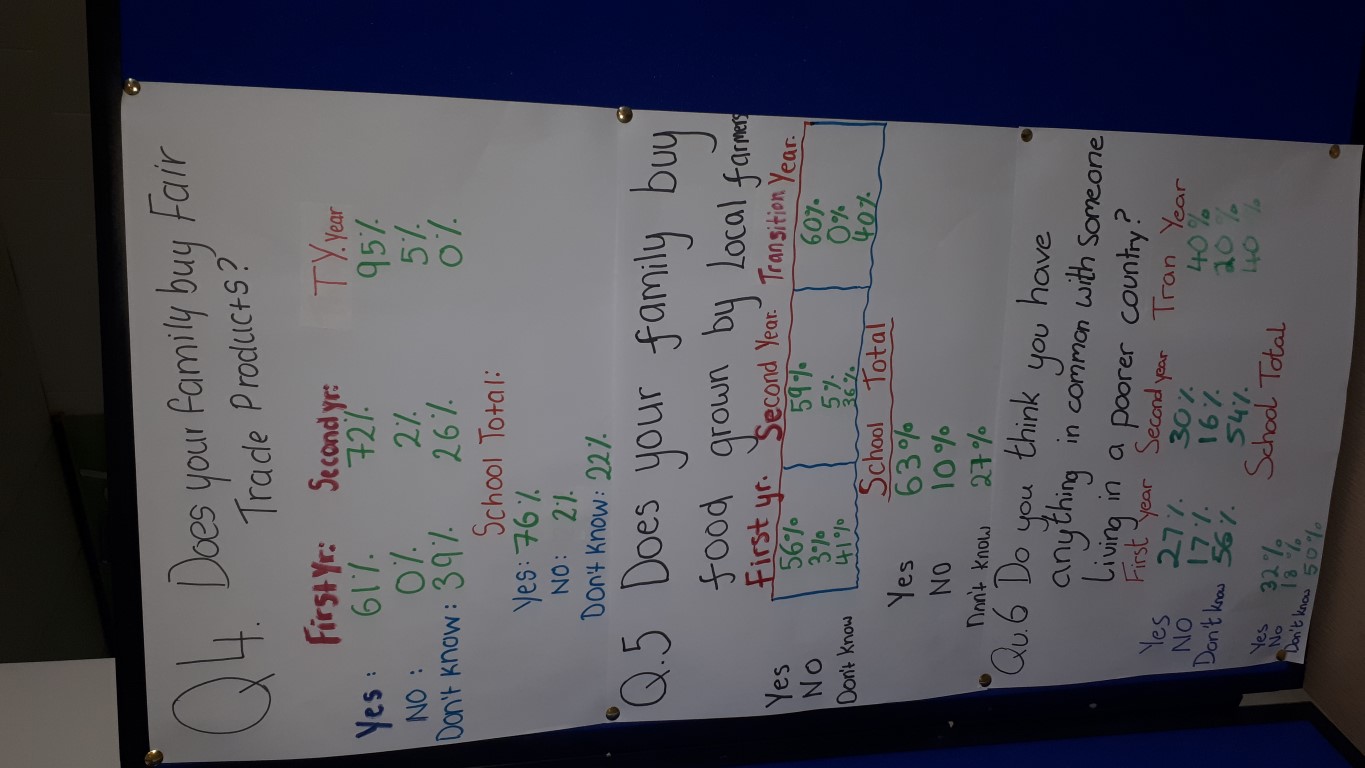 Q4. Does your family buy Fair
Trade Products?
First Yr: Second yr: TY. Year
Yes : 61% 72% 95%
NO : 0% 2% 5%
Don't know : 39% 26% 0%
School Total:
Yes: 76%
NO: 2%
Don't know: 22%
Q.5 Does your family buy
food grown by Local farmers
First yr. Second Year. Transition Year.
Yes 56% 59% 60%
NO 3% 5% 0%
Don't know 41% 36% 40%
School Total
Yes 63%
NO 10%
Don't know 27%
Qu.6 Do you think you have
anything in common with someone
Living in a poorer country?
First year Second year Tran Year
Yes 27% 30% 40%
NO 17% 16% 20%
Don't know 56% 54% 40%
School Total
Yes 32%
No 18%
Don't know 50%